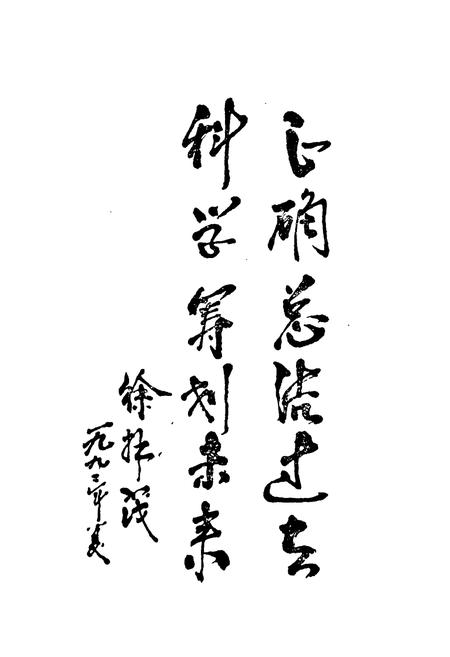 正确总结过去
科学筹划未来
徐振
一九九二年夏